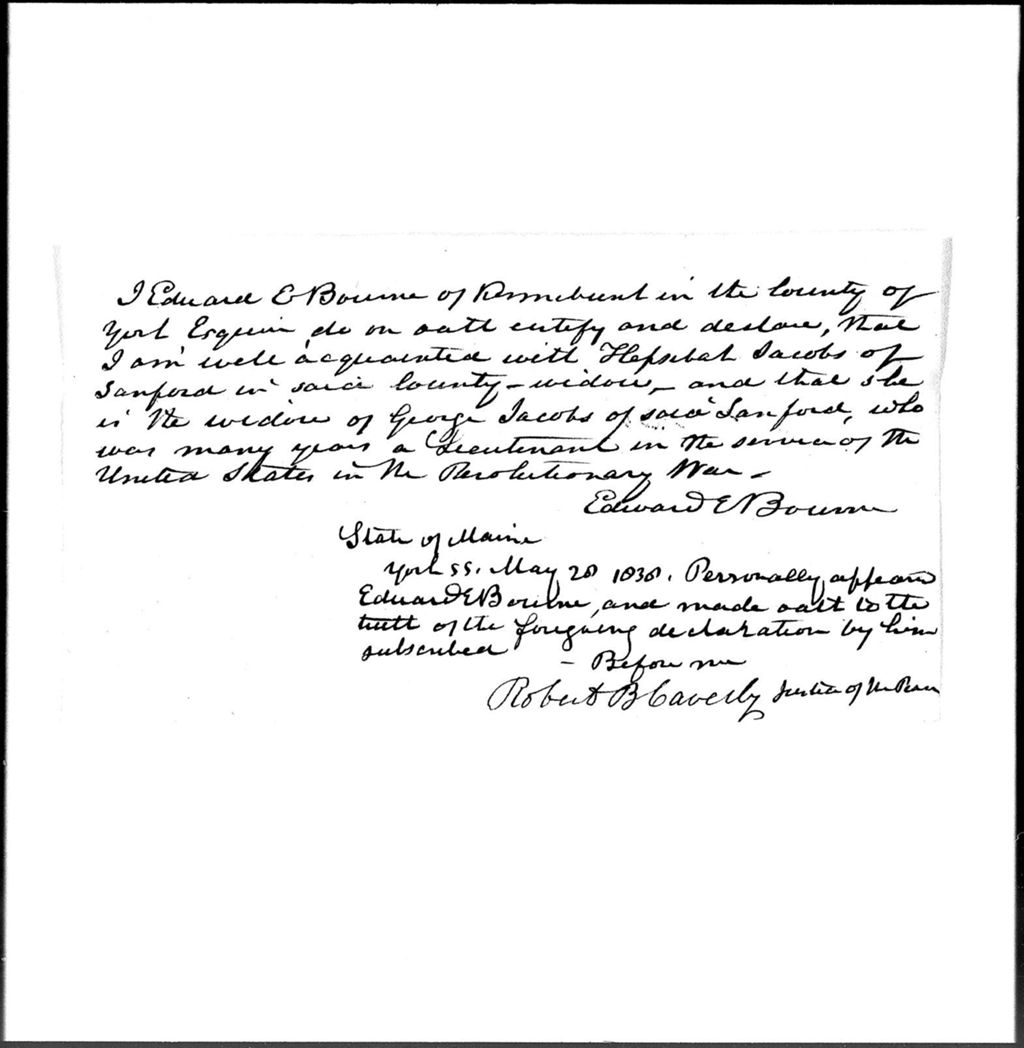 I Edward E Bourne of Kennebunk in the County of
York Esquire do on oath certify and declare, that
I am well acquainted with Hepsibah Jacobs of
Sanford in said County - widow, - and that she
is the widow of George Jacobs of said Sanford, who
was many years a Lieutenant in the service of the
United States in the Revolutionary War -
Edward E Bourne
State of Maine
York ss. May 28 1838. Personally appeared
Edward E Bourne, and made oath to the
truth of the foregoing declaration by him
subscribed
- Before me
Robert B Caverly Justice of the Peace